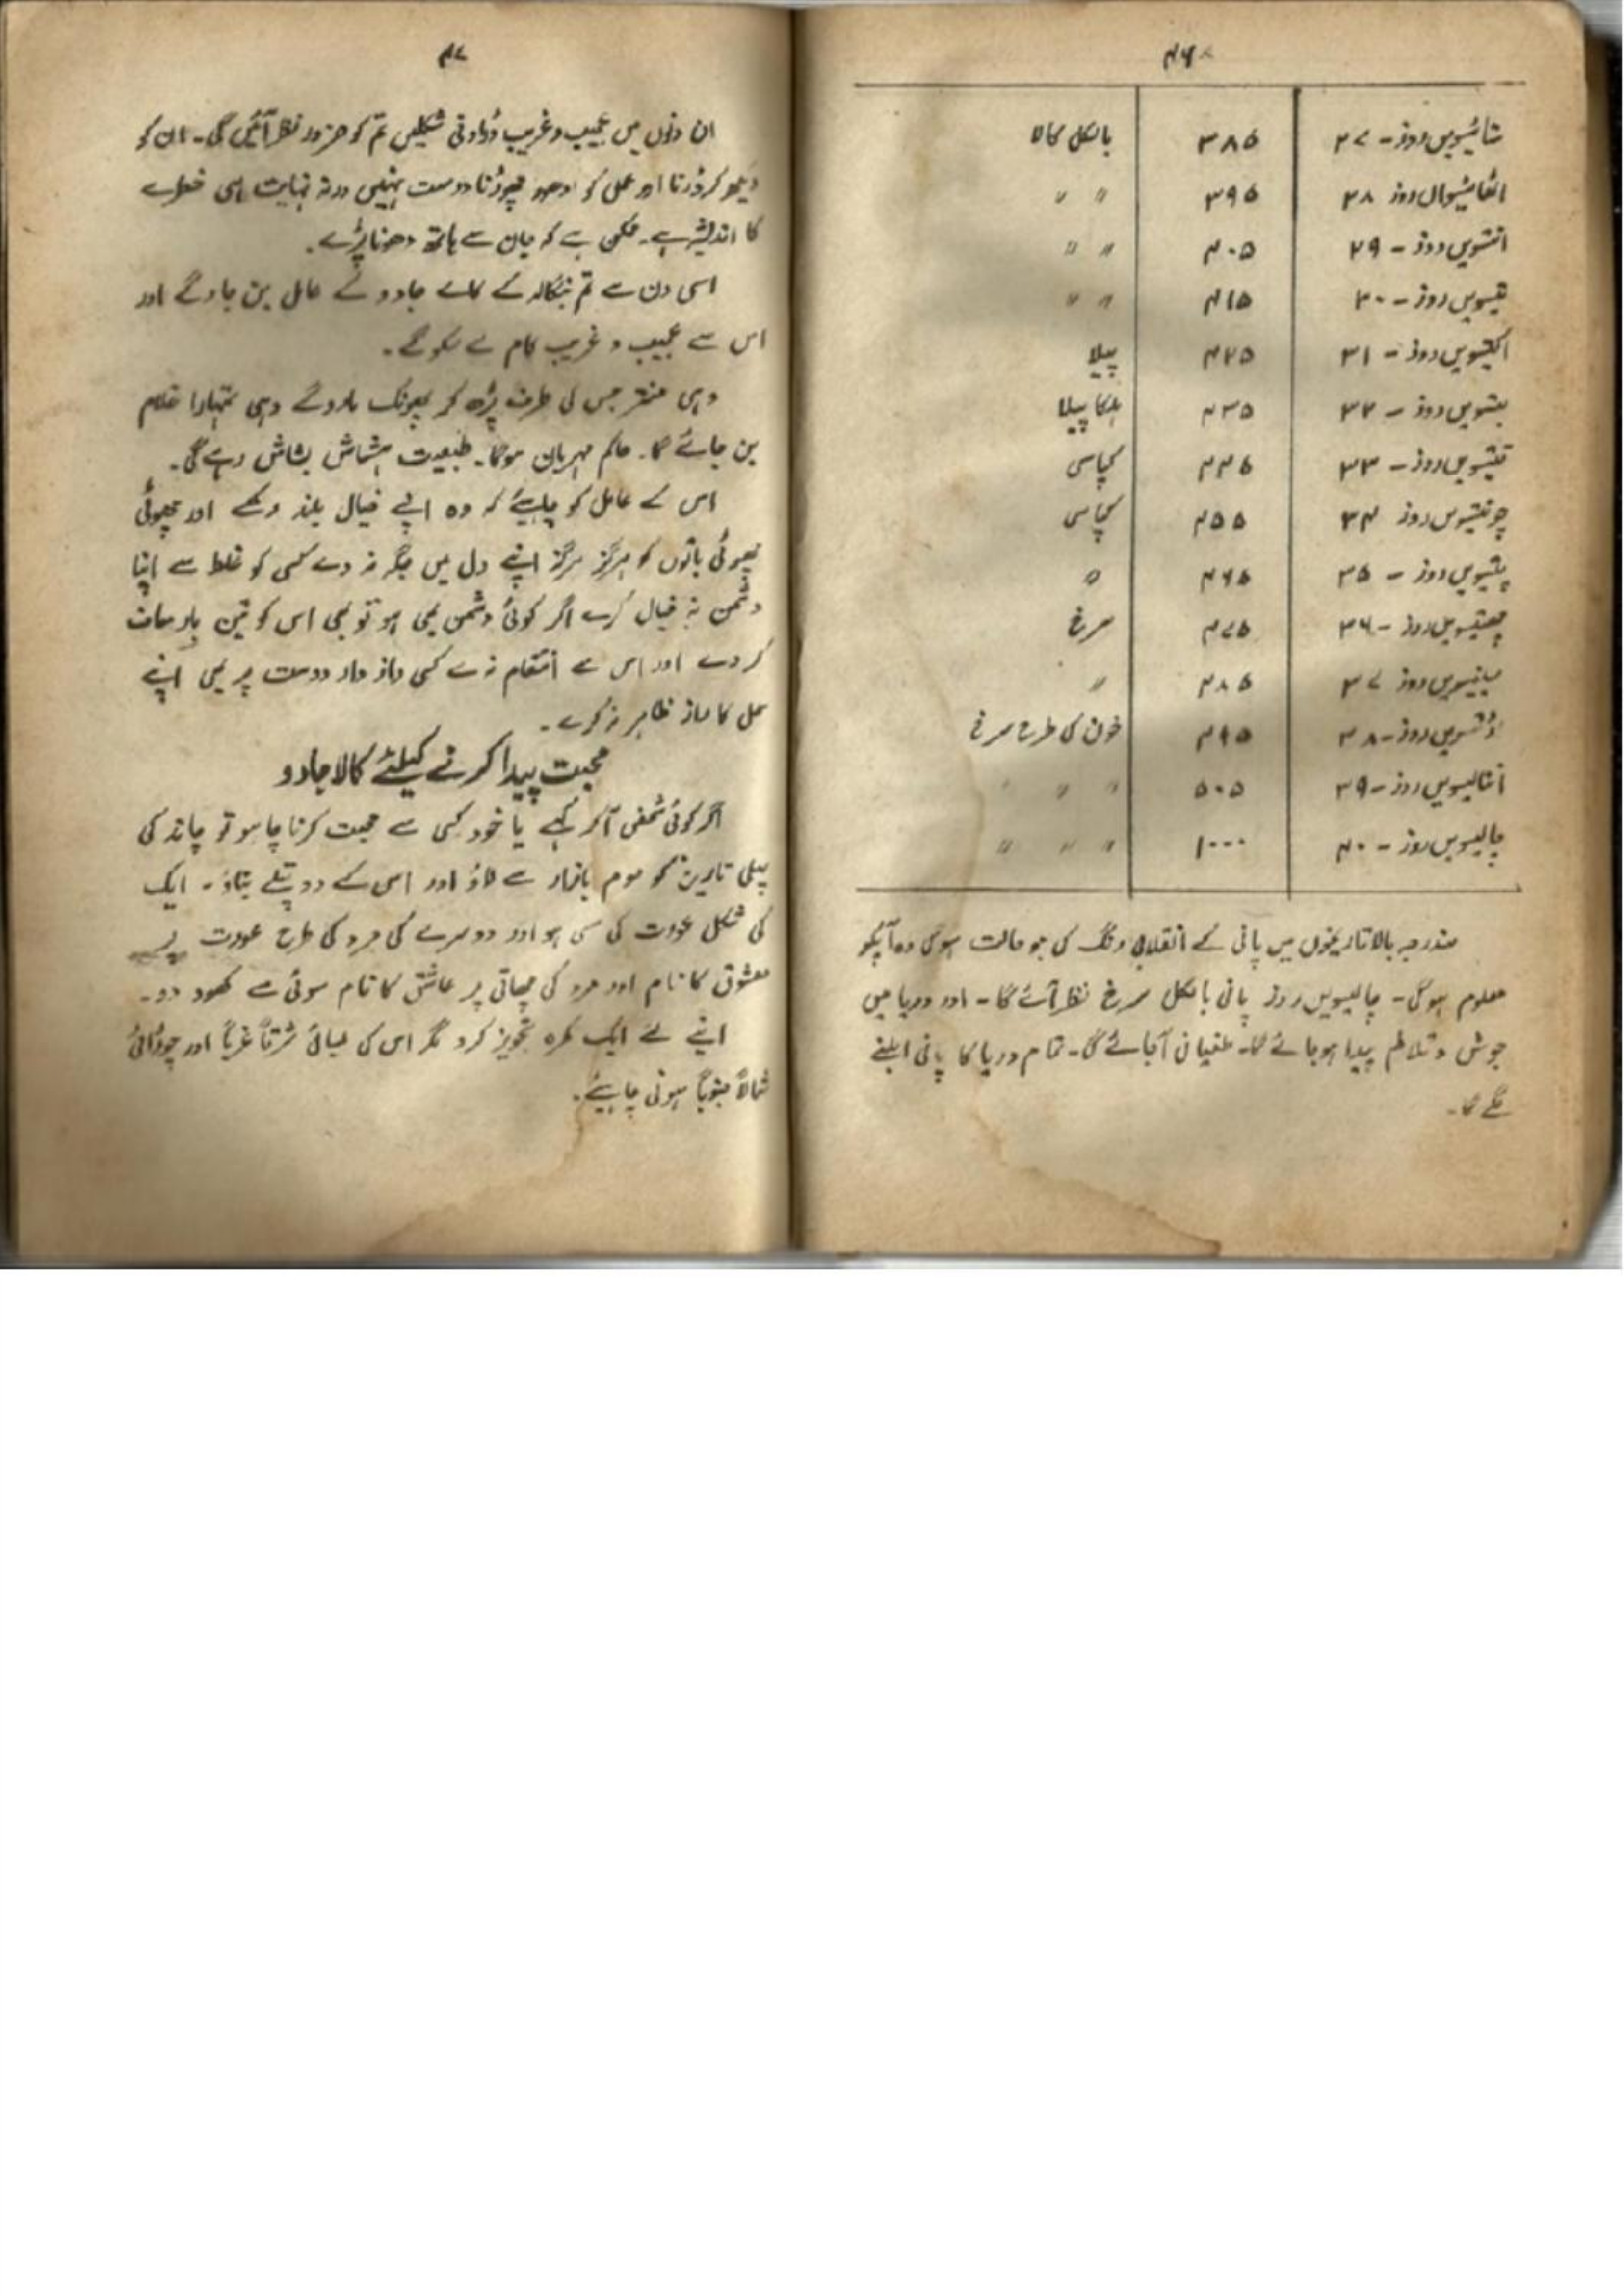 ۴۶
ستائیسویں روز - ۲۷ ۳۸۵ بالکل کالا
اٹھائیسواں روز ۲۸ ۳۹۵ " "
انتسویں روز - ۲۹ ۴۰۵ " "
تیسویں روز - ۳۰ ۴۱۵ " "
اکتیسویں روز - ۳۱ ۴۲۵ پیلا
بتسویں روز - ۳۲ ۴۳۵ ہلکا پیلا
تیتیسویں روز - ۳۳ ۴۴۵ کپاسی
چونتیسویں روز ۳۴ ۴۵۵ کپاسی
پنتیسویں روز - ۳۵ ۴۶۵ "
چھتیسویں روز - ۳۶ ۴۷۵ سرخ
سینتیسویں روز ۳۷ ۴۸۵ "
اڑتسویں روز - ۳۸ ۴۹۵ خون کی طرح سرخ
انتالیسویں روز - ۳۹ ۵۰۵ " " "
چالیسویں روز - ۴۰ ۱۰۰۰ " " "
مندرجہ بالا تاریخوں میں پانی کے انقلاب رنگ کی جو حالت ہوگی وہ آپکو
معلوم ہوگی - چالیسویں روز پانی بالکل سرخ نظر آئے گا - اور دریا میں
جوش و تلاطم پیدا ہو جائے گا - طغیانی آجائے گی - تمام دریا کا پانی ابلنے
لگے گا -
۴۷
ان دنوں میں عجیب و غریب ڈراونی شکلیں تم کو ضرور نظر آئیں گی - ان کو
دیکھ کر ڈرنا اور عمل کو ادھورا چھوڑنا درست نہیں ورنہ نہایت ہی خطرے
کا اندیشہ ہے - ممکن ہے کہ جان سے ہاتھ دھونا پڑے -
اسی دن سے تم بنگالہ کے کالے جادو کے عامل بن جاوگے اور
اس سے عجیب و غریب کام لے سکو گے -
وہی منتر جس کی طرف پڑھ کر پھونک مارو گے وہی تمہارا غلام
بن جائے گا - حاکم مہربان ہوگا - طبیعت ہشاش بشاش رہے گی -
اس کے عامل کو چاہیئے کہ وہ اپنے خیال بلند رکھے اور چھوٹی
چھوٹی باتوں کو ہرگز ہرگز اپنے دل میں جگہ نہ دے کسی کو غلط سے اپنا
دشمن نہ خیال کرے اگر کوئی دشمن بھی ہو تو بھی اس کو تین بار معاف
کر دے اور اس سے انتقام نہ لے کسی راز دار دوست پر بھی اپنے
عمل کا راز ظاہر نہ کرے -
محبت پیدا کرنے کیلئے کالا جادو
اگر کوئی شخص آکر کہے یا خود کسی سے محبت کرنا چاہو تو چاند کی
پہلی تاریخ کو موم بازار سے لاؤ اور اس کے دو پتلے بناؤ - ایک
کی شکل عورت کی سی ہو اور دوسرے کی مرد کی طرح عورت پر
معشوق کا نام اور مرد کی چھاتی پر عاشق کا نام سوئی سے کھود دو -
اپنے لئے ایک کمرہ تجویز کرو مگر اس کی لمبائی شرقاً غرباً اور چوڑائی
شمالاً جنوباً ہونی چاہیئے -